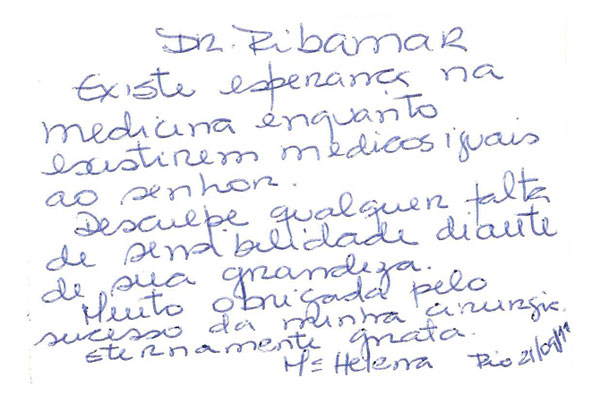 Dr. Ribamar
Existe esperança na
medicina enquanto
existirem médicos iguais
ao senhor.
Desculpe qualquer falta
de sensibilidade diante
de sua grandeza.
Muito obrigada pelo
sucesso da minha cirurgia.
Eternamente grata.
Mª Helena Rio 21/